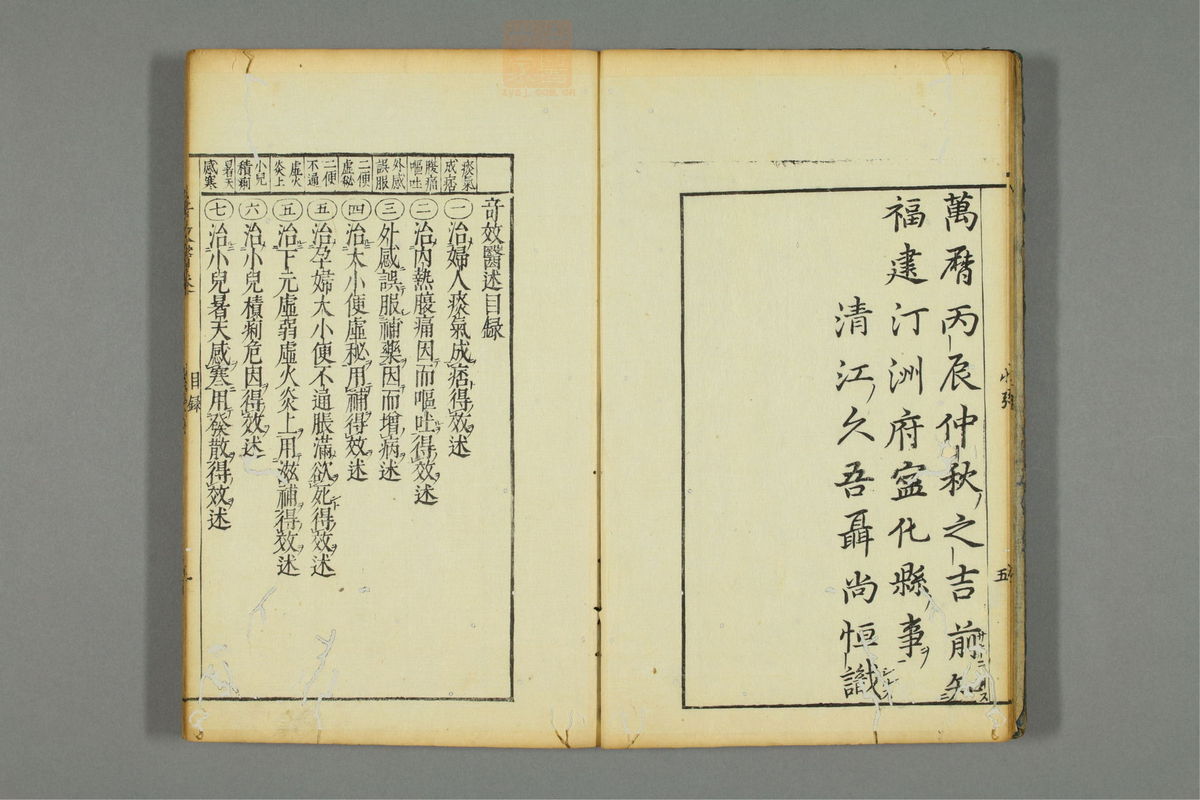 萬曆丙辰仲秋之吉前知
福建汀洲府寍化縣事
清江久吾聶尚恒識
五
奇效醫述目録
一治婦人痰氣成痞得效述
二治內熱腹痛因而嘔吐得效述
三外感誤服補藥因而增病述
四治大小便虛秘用補得效述
五治孕婦大小便不通脹滿欲死得效述
五治下元虛弱虛火炎上用滋補得效述
六治小兒積痢危因得效述
七治小兒暑天感寒用發散得效述
痰氣成痞
腹痛嘔吐
外感誤服
二便虛秘
二便不通
虛火炎上
小兒積痢
暑天感寒
目録